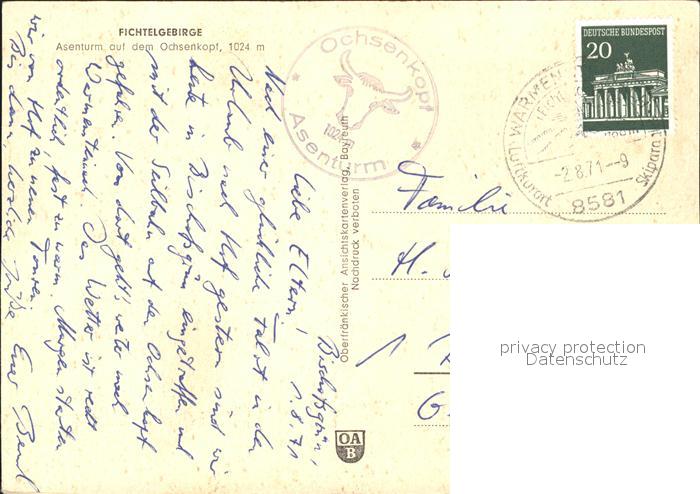 FICHTELGEBIRGE
Asenturm auf dem Ochsenkopf, 1024 m
Ochsenkopf
1024 m
Asenturm
DEUTSCHE BUNDESPOST
20
WARMEN
-2.8.71--9
Luftkurort
8581
Skipara
Bischofsgrün,
1.8.71
Liebe Eltern!
Nach einer glücklichen Fahrt in den
Urlaub nach Hof gestern sind wir
heute in Bischofsgrün eingetroffen und
mit der Seilbahn auf den Ochsenkopf
gefahren. Von dort geht's weiter nach
Warmensteinach. Das Wetter ist recht
ordentlich, fast zu warm. Morgen starten
wir von Hof zu neuen Touren.
Bis dann, herzliche Grüße Euer Bernd
Oberfränkischer Ansichtskartenverlag, Bayreuth
Nachdruck verboten
Familie
H.
1
G
OA
B
privacy protection
Datenschutz